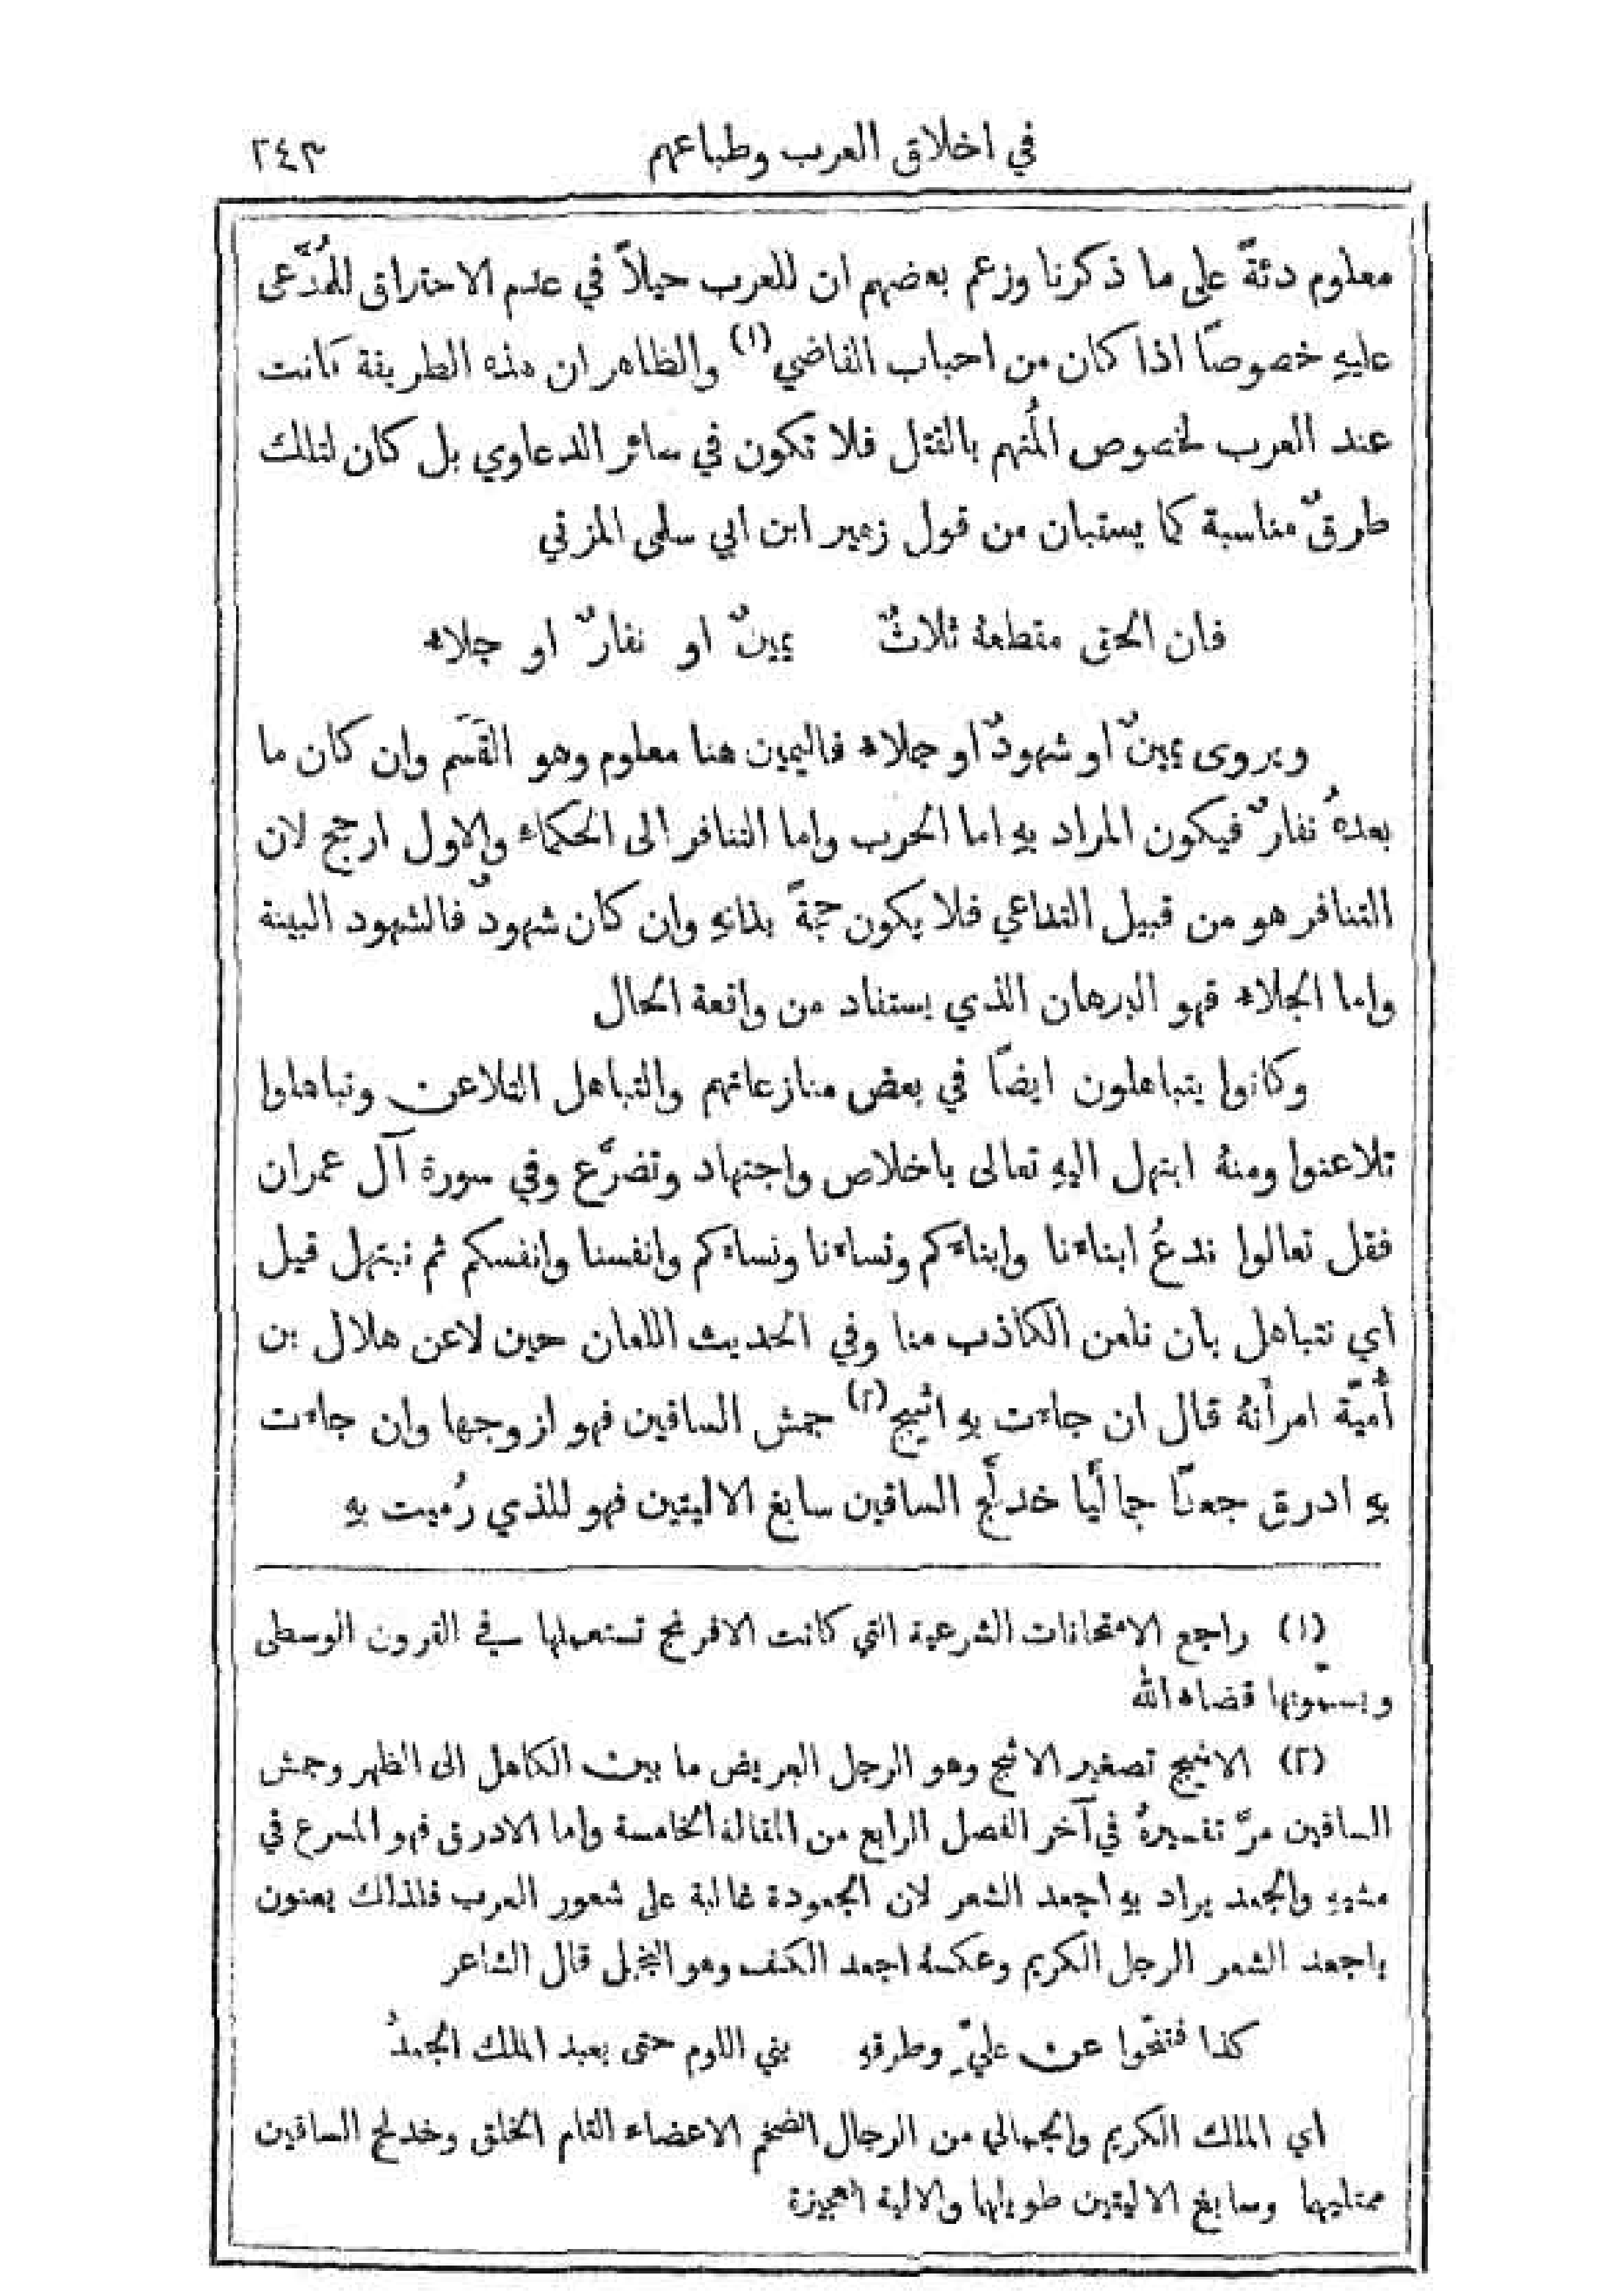 في اخلاق العرب وطباعهم ٢٤٣
معلوم دئةً على ما ذكرنا وزعم بعضهم ان للعرب حيلاً في عدم الاحتراق للمُدَّعى
عليهِ خصوصًا اذا كان من احباب القاضي (١) والظاهر ان هذه الطريقة كانت
عند العرب لخصوص المُتهم بالقتل فلا تكون في سائر الدعاوي بل كان لتلك
طرقٌ مناسبة كما يستبان من قول زهير ابن ابي سلمى المزني
فان الحق مقطعهُ ثلاثٌ يمينٌ او نفارٌ او جلاء
ويروى يمينٌ او شهودٌ او جلاء فاليمين هنا معلوم وهو القَسَم وان كان ما
بعدهُ نفارٌ فيكون المراد بهِ اما الحرب واما التنافر الى الحكماء والاول ارجح لان
التنافر هو من قبيل التداعي فلا يكون حجةً بذاتهِ وان كان شهودٌ فالشهود البينة
واما الجلاء فهو البرهان الذي يستفاد من واقعة الحال
وكانوا يتباهلون ايضًا في بعض منازعاتهم والتباهل التلاعن وتباهلوا
تلاعنوا ومنهُ ابتهل اليهِ تعالى باخلاص واجتهاد وتضرَّع وفي سورة آل عمران
فقل تعالوا ندعُ ابناءنا وابناءكم ونساءنا ونساءكم وانفسنا وانفسكم ثم نبتهل قيل
اي نتباهل بان نلعن الكاذب منا وفي الحديث اللعان حين لاعن هلال بن
أُميَّة امرأتهُ قال ان جاءت بهِ اثيبج (٢) حمش الساقين فهو لزوجها وان جاءت
بهِ ادرق جعدًا جماليًّا خدلَّج الساقين سابغ الاليتين فهو للذي رُميت بهِ
(١) راجع الامتحانات الشرعية التي كانت الافرنج تستعملها في القرون الوسطى
ويسمّونها قضاء الله
(٢) الاثيبج تصغير الاثبج وهو الرجل العريض ما بين الكاهل الى الظهر وحمش
الساقين مرَّ تفسيرهُ في آخر الفصل الرابع من المقالة الخامسة واما الادرق فهو المسرع في
مشيهِ والجعد يراد بهِ اجعد الشعر لان الجعودة غالبة على شعور العرب فلذلك يعنون
باجعد الشعر الرجل الكريم وعكسهُ اجعد الكف وهو البخيل قال الشاعر
كذا فتنحّوا عن عليٍّ وطرقهِ بني اللوم حتى يعبد الملك الجعدُ
اي الملك الكريم والجمالي من الرجال الضخم الاعضاء التام الخلق وخدلج الساقين
ممتليها وسابغ الاليتين طويلها والالية العجيزة